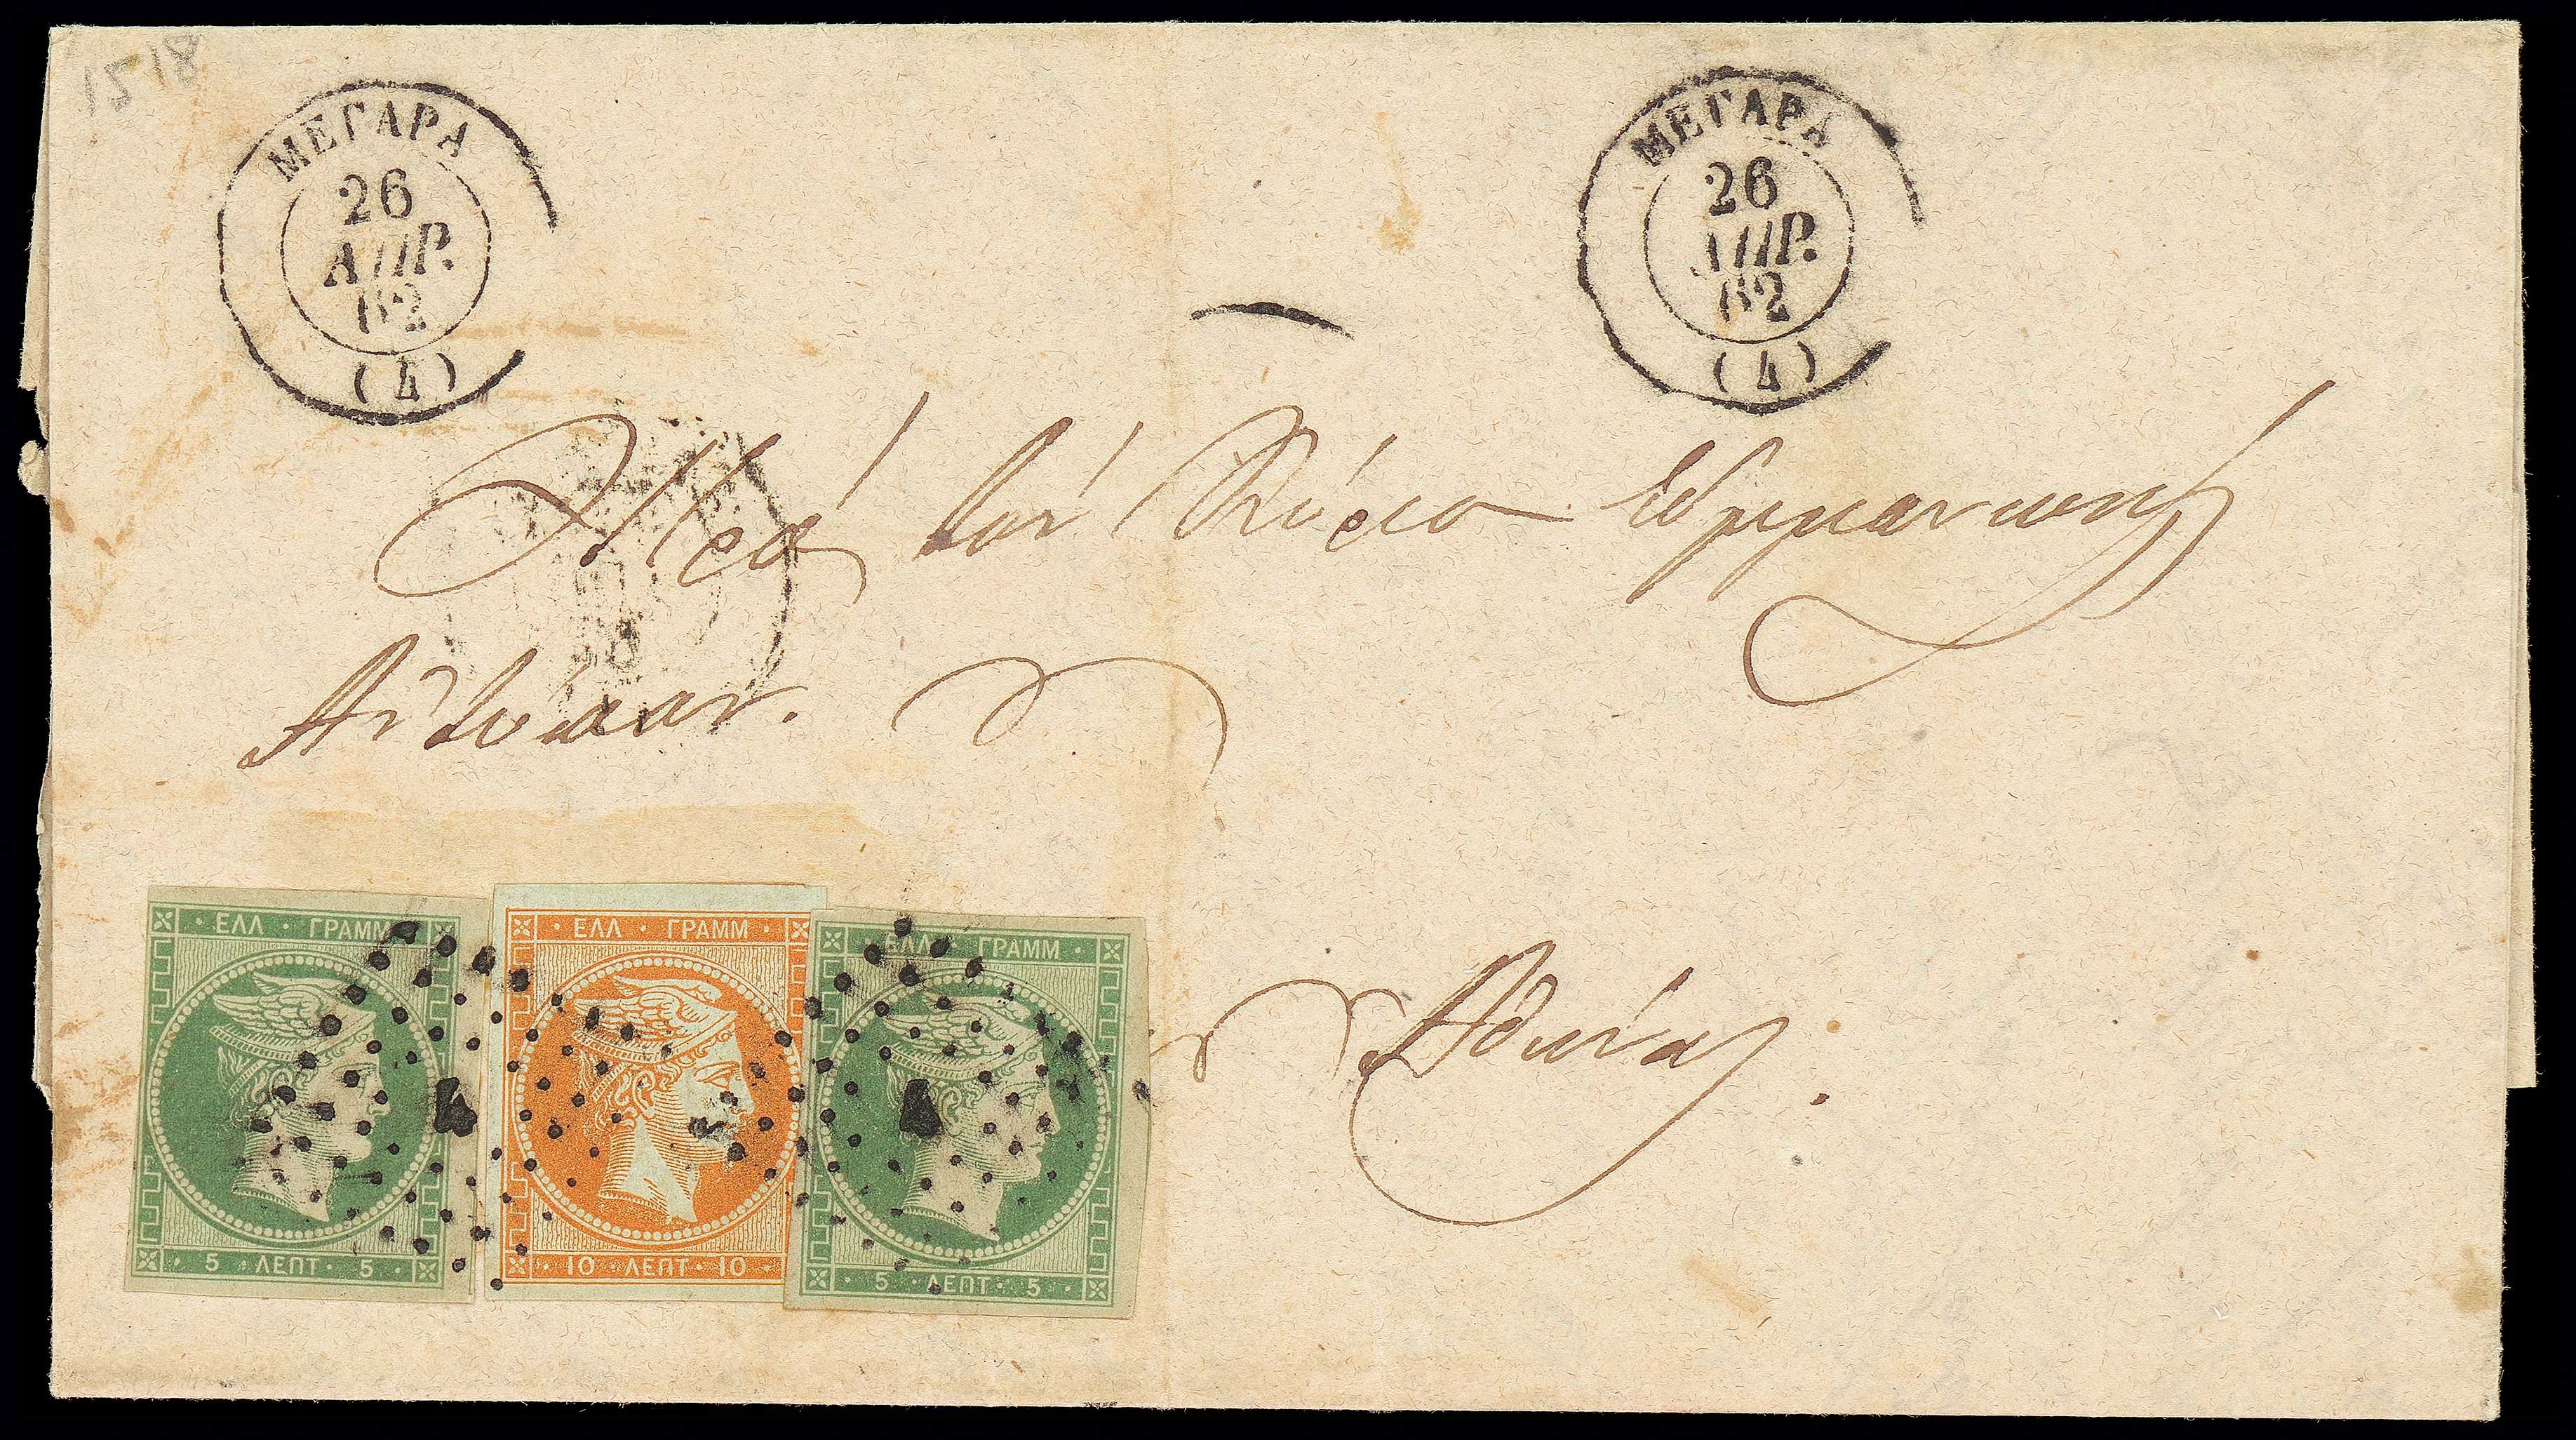 1518
ΜΕΓΑΡΑ
26
ΑΠΡ.
62
(4)
ΜΕΓΑΡΑ
26
ΑΠΡ.
62
(4)
Πρὸς τὸν Κύριον
Ἀθήνας.
ΕΛΛ · ΓΡΑΜΜ
4
5 · ΛΕΠΤ · 5
ΕΛΛ · ΓΡΑΜΜ
10 · ΛΕΠΤ · 10
ΕΛΛ · ΓΡΑΜΜ
4
5 · ΛΕΠΤ · 5